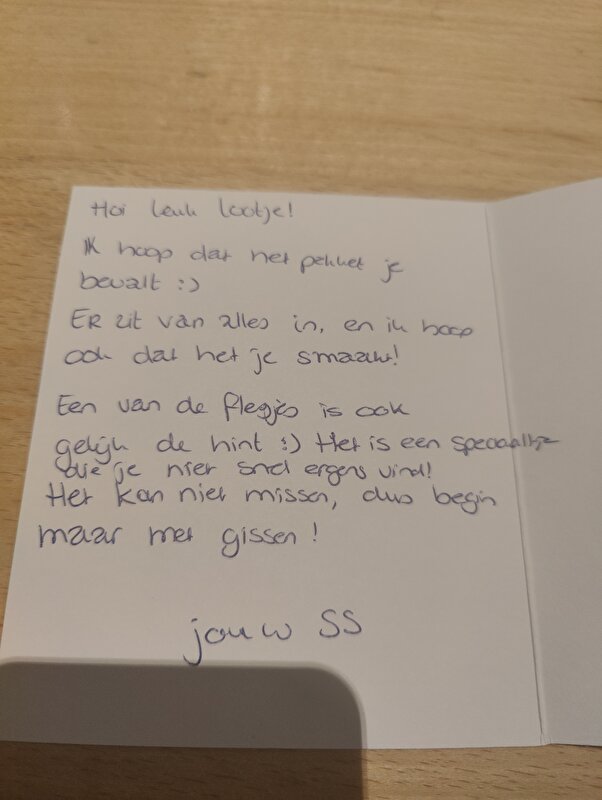 Hoi leuk lootje!
Ik hoop dat het pekket je
bevalt :)
Er zit van alles in, en ik hoop
ook dat het je smaakt!
Een van de flesjes is ook
gelijk de hint :) Het is een speciaaltje
die je niet snel ergens vind!
Het kan niet missen, dus begin
maar met gissen!
jouw SS